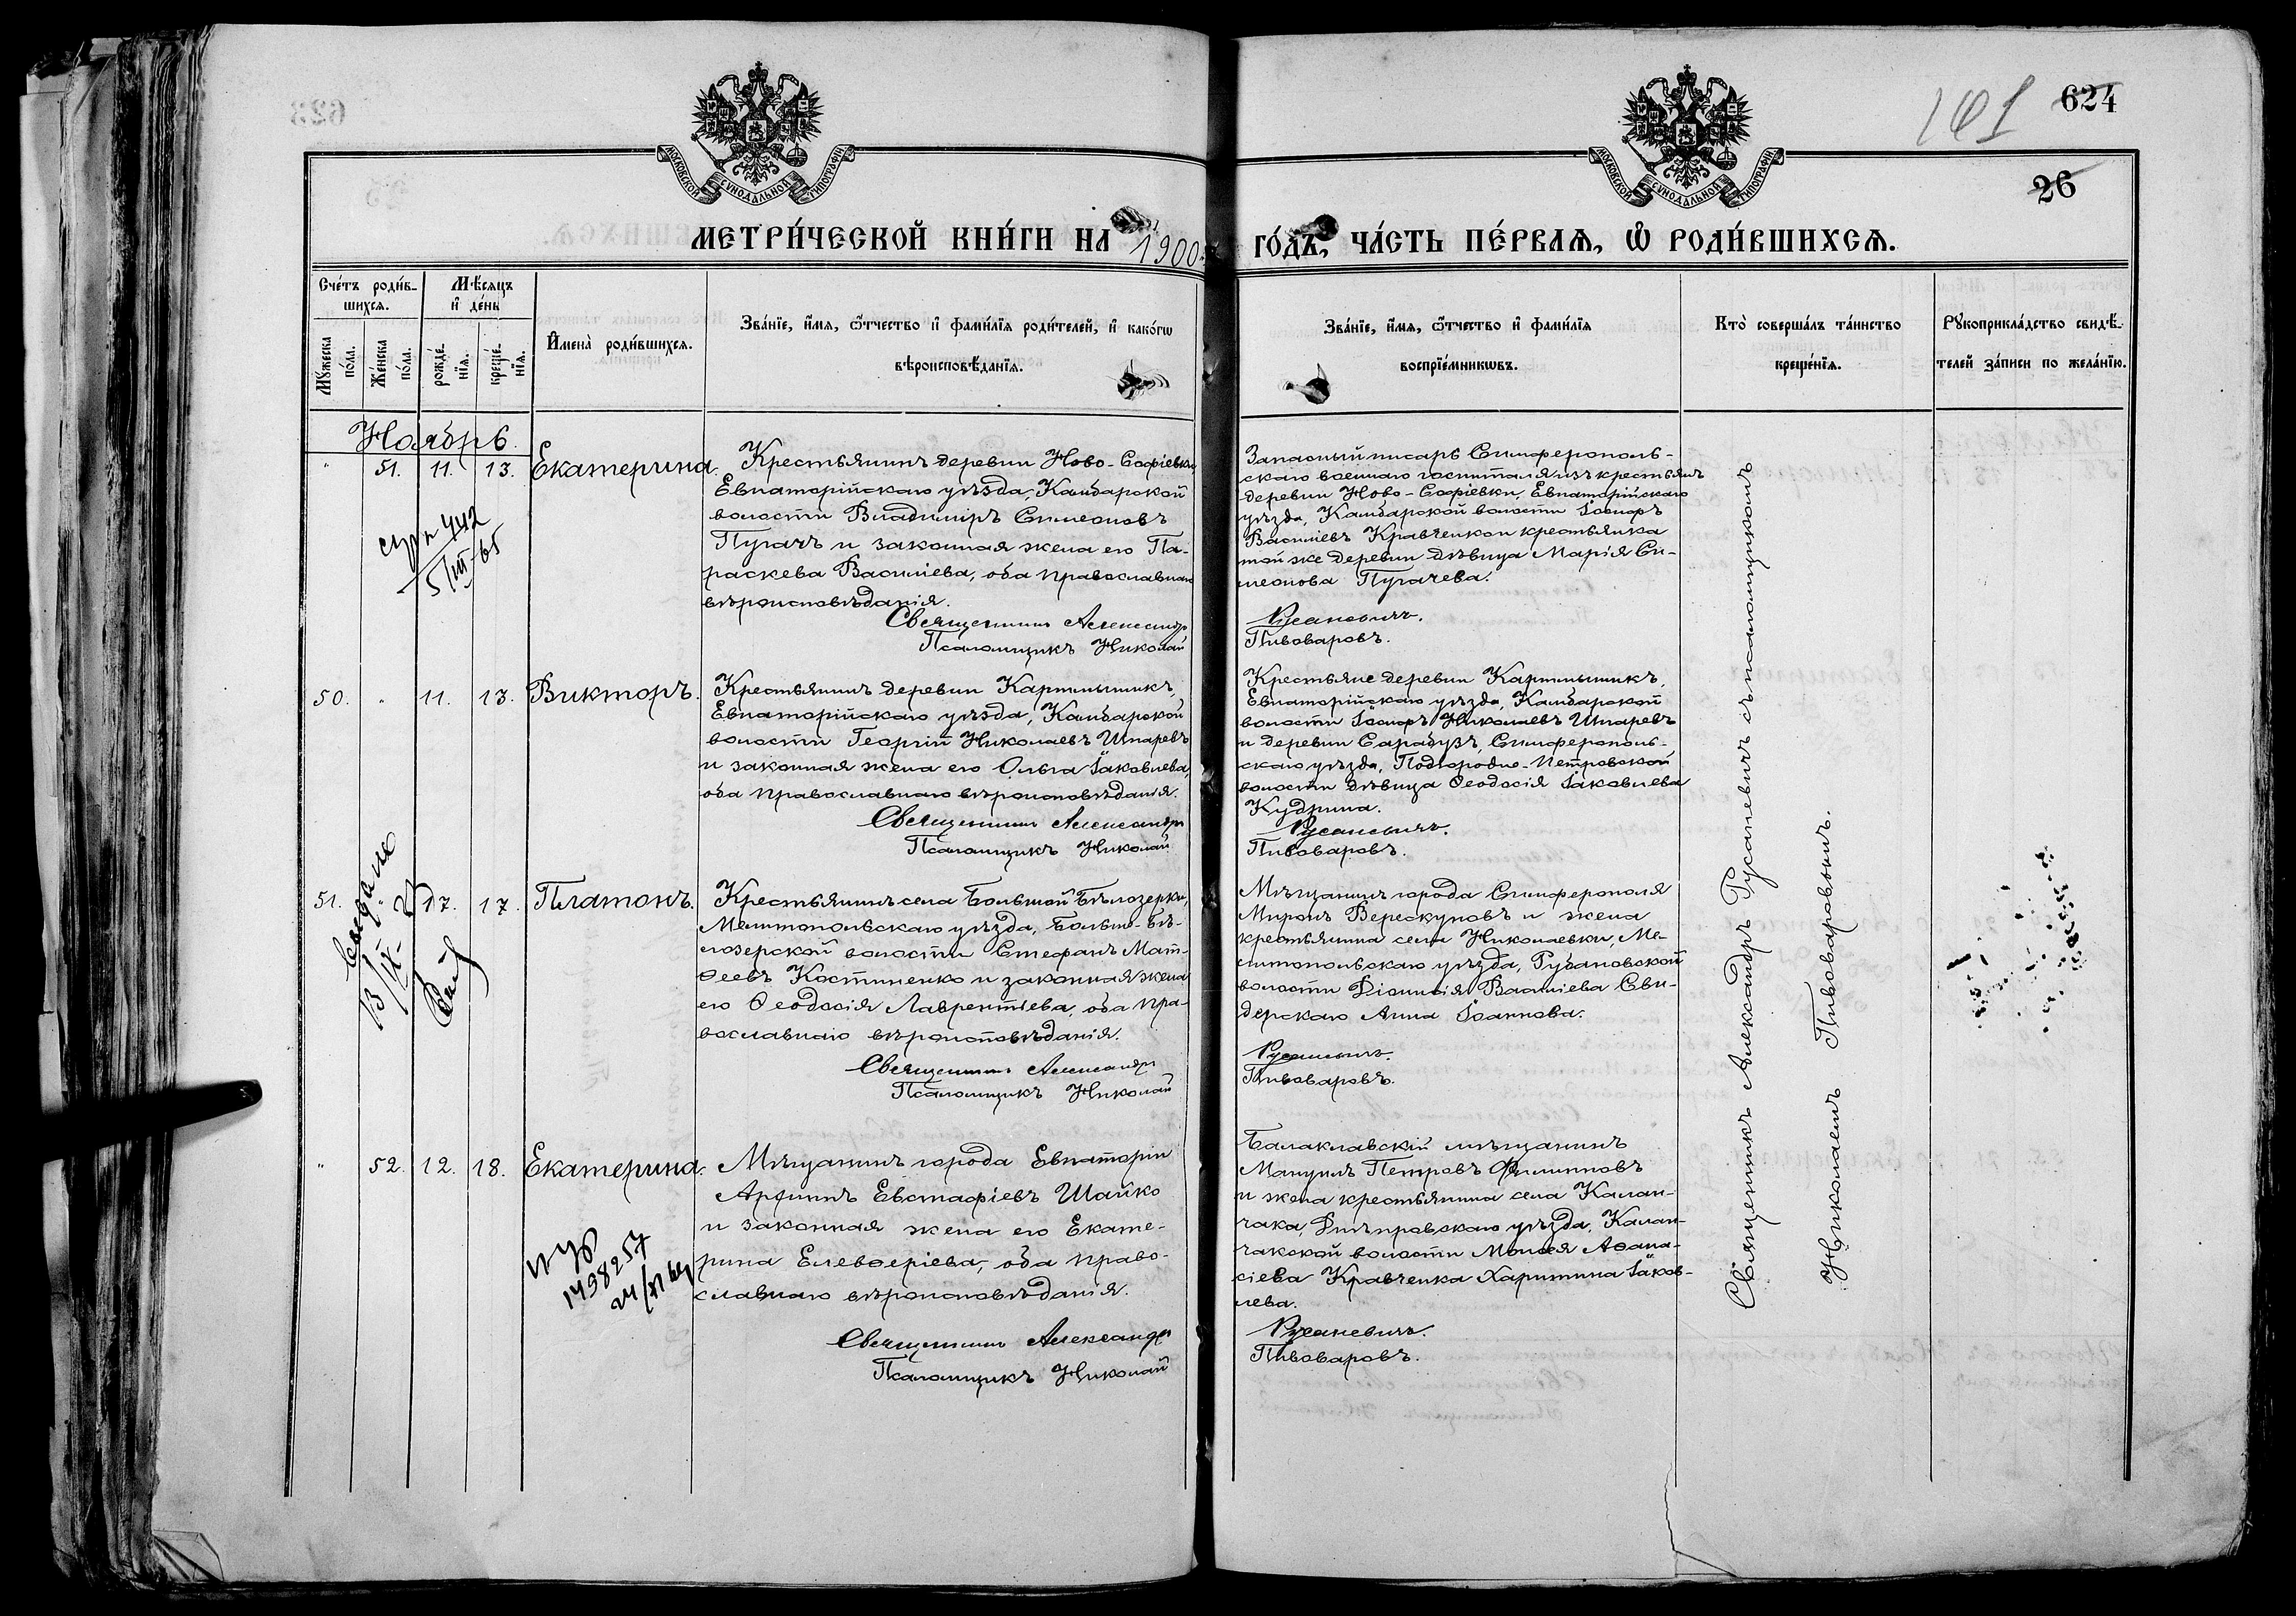 624
26
МОСКОВСКОЙ СѴНОДАЛЬНОЙ ТИПОГРАФІИ
МОСКОВСКОЙ СѴНОДАЛЬНОЙ ТИПОГРАФІИ
МЕТРИ́ЧЕСКОЙ КНИ́ГИ НА 1900 ГО́ДЪ, ЧА́СТЬ ПЕ́РВАѦ, Ѡ РОДИ́ВШИХСѦ.
Сче́тъ роди́в-
шихсѧ.
Мꙋ́жеска по́ла.
Же́нска по́ла.
Мѣ́сѧцъ и҆ де́нь
рожде́-
нїѧ.
креще́-
нїѧ.
И҆мена̀ роди́вшихсѧ.
Зва́нїе, и҆́мѧ, ѻ҆́тчество и҆ фами́лїѧ роди́телей, и҆ како́гѡ
вѣроисповѣ́данїѧ.
Зва́нїе, и҆́мѧ, ѻ҆́тчество и҆ фами́лїѧ
воспрїе́мникѡвъ.
Кто̀ соверша́лъ та́инство
креще́нїѧ.
Рꙋкоприкла́дство свидѣ́-
телей за́писи по жела́нїю.
Ноябрь.
" 51. 11. 13. Екатерина.
Крестьянинъ деревни Ново-Софіевки,
Евпаторійскаго уѣзда, Камбарской
волости Владиміръ Симеоновъ
Пугачъ и законная жена его Па-
раскева Василіева, оба православнаго
вѣроисповѣданія.
Священникъ Александръ
Псаломщикъ Николай
Запасный писарь Симферополь-
скаго военнаго госпиталя изъ крестьянъ
деревни Ново-Софіевки, Евпаторійскаго
уѣзда, Камбарской волости Іосифъ
Василіевъ Кравченко и крестьянка
той же деревни дѣвица Марія Си-
меонова Пугачева.
Русаневичъ.
Пивоваровъ.
442
5/III 65
50. " 11. 13. Викторъ.
Крестьянинъ деревни Картмышикъ,
Евпаторійскаго уѣзда, Камбарской
волости Георгій Николаевъ Шпаревъ
и законная жена его Ольга Іаковлева,
оба православнаго вѣроисповѣданія.
Священникъ Александръ
Псаломщикъ Николай
Крестьяне деревни Картмышикъ,
Евпаторійскаго уѣзда, Камбарской
волости Іосифъ Николаевъ Шпаревъ
и деревни Сарабузъ, Симферополь-
скаго уѣзда, Подгородне-Петровской
волости дѣвица Ѳеодосія Іаковлева
Кудрина.
Русаневичъ.
Пивоваровъ.
51. " 17. 17. Платонъ.
Крестьянинъ села Большой Бѣлозерки,
Мелитопольскаго уѣзда, Больше-Бѣ-
лозерской волости Стефанъ Мат-
ѳеевъ Костиненко и законная жена
его Ѳеодосія Лаврентіева, оба пра-
вославнаго вѣроисповѣданія.
Священникъ Александръ
Псаломщикъ Николай
Мѣщанинъ города Симферополя
Миронъ Верескуновъ и жена
крестьянина села Николаевки, Ме-
литопольскаго уѣзда, Рубановской
волости Діонисія Василіева Сви-
дерскаго Анна Іоаннова.
Русаневичъ.
Пивоваровъ.
" 52. 12. 18. Екатерина.
Мѣщанинъ города Евпаторіи
Арфинъ Евстафіевъ Шайко
и законная жена его Екате-
рина Елевѳеріева, оба право-
славнаго вѣроисповѣданія.
Священникъ Александръ
Псаломщикъ Николай
Балаклавскій мѣщанинъ
Мануилъ Петровъ Филипповъ
и жена крестьянина села Калан-
чака, Днѣпровскаго уѣзда, Калан-
чакской волости Моисея Аѳана-
сіева Кравченка Харитина Іаков-
лева.
Русаневичъ.
Пивоваровъ.
1498257
Священникъ Александръ Русаневичъ съ псаломщикомъ
Николаемъ Пивоваровымъ.